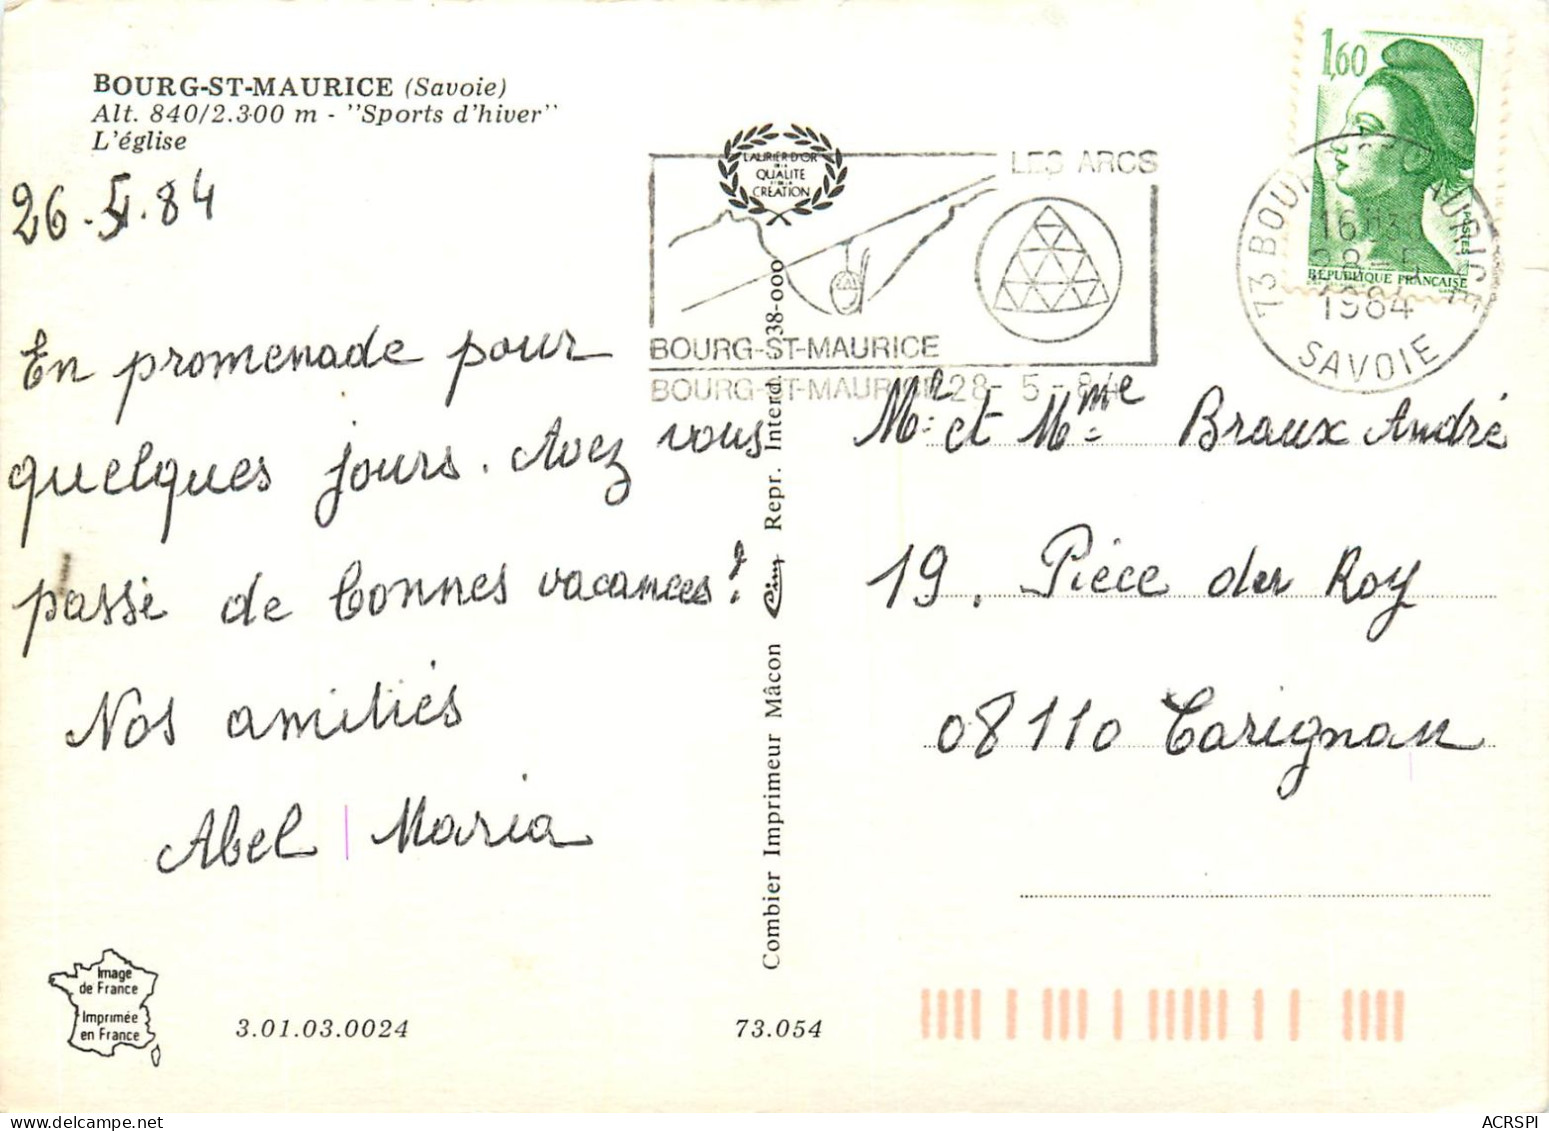 BOURG-ST-MAURICE (Savoie)
Alt. 840/2.300 m - "Sports d'hiver"
L'église
26.5.84
En promenade pour
quelques jours. Avez vous
passé de bonnes vacances?
Nos amitiés
Abel Maria
Image
de France
Imprimée
en France
3.01.03.0024
73.054
Combier Imprimeur Mâcon Cim Repr. Interd. 38-000
LAURIER D'OR
DE LA
QUALITE
ET DE LA
CREATION
LES ARCS
BOURG-ST-MAURICE
BOURG-ST-MAURICE 28-5-84
1,60
POSTES
REPUBLIQUE FRANÇAISE
73 BOURG ST MAURICE
16H
28-5
1984
SAVOIE
Mr et Mme Braux André
19. Pièce du Roy
08110 Carignan
ACRSPI